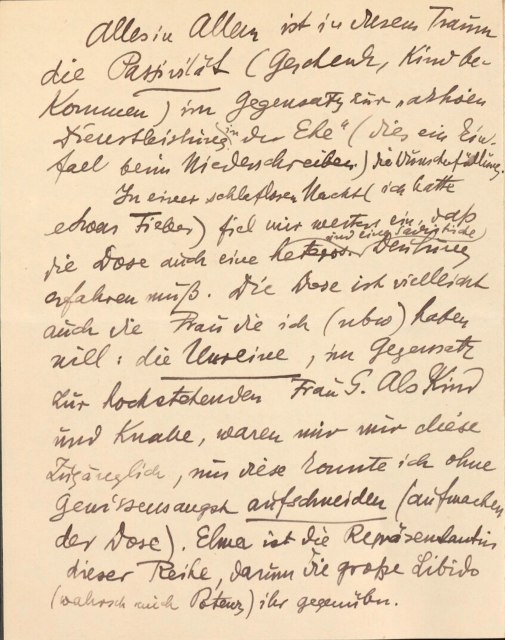 Alles in Allem ist in diesem Traum
die Passivität (Geschenk, Kind be-
kommen) im Gegensatz zur „aktiven
Dienstleistung in der Ehe“ (dies ein Ein-
fall beim Niederschreiben) die Wunscherfüllung.
In einer schlaflosen Nacht (ich hatte
etwas Fieber) fiel mir weiters ein, daß
und eine sadistische
die Dose auch eine heteros. Deutung
erfahren muß. Die Dose ist vielleicht
auch die Frau die ich (ubw) haben
will: die Unreine, im Gegensatz
zur hochstehenden Frau G. Als Kind
und Knabe, waren mir nur diese
zugänglich, nur diese konnte ich ohne
Gewissensangst aufschneiden (aufmachen
der Dose). Elma ist die Repräsentantin
dieser Reihe, darum die große Libido
(wahrsch auch Potenz) ihr gegenüber.